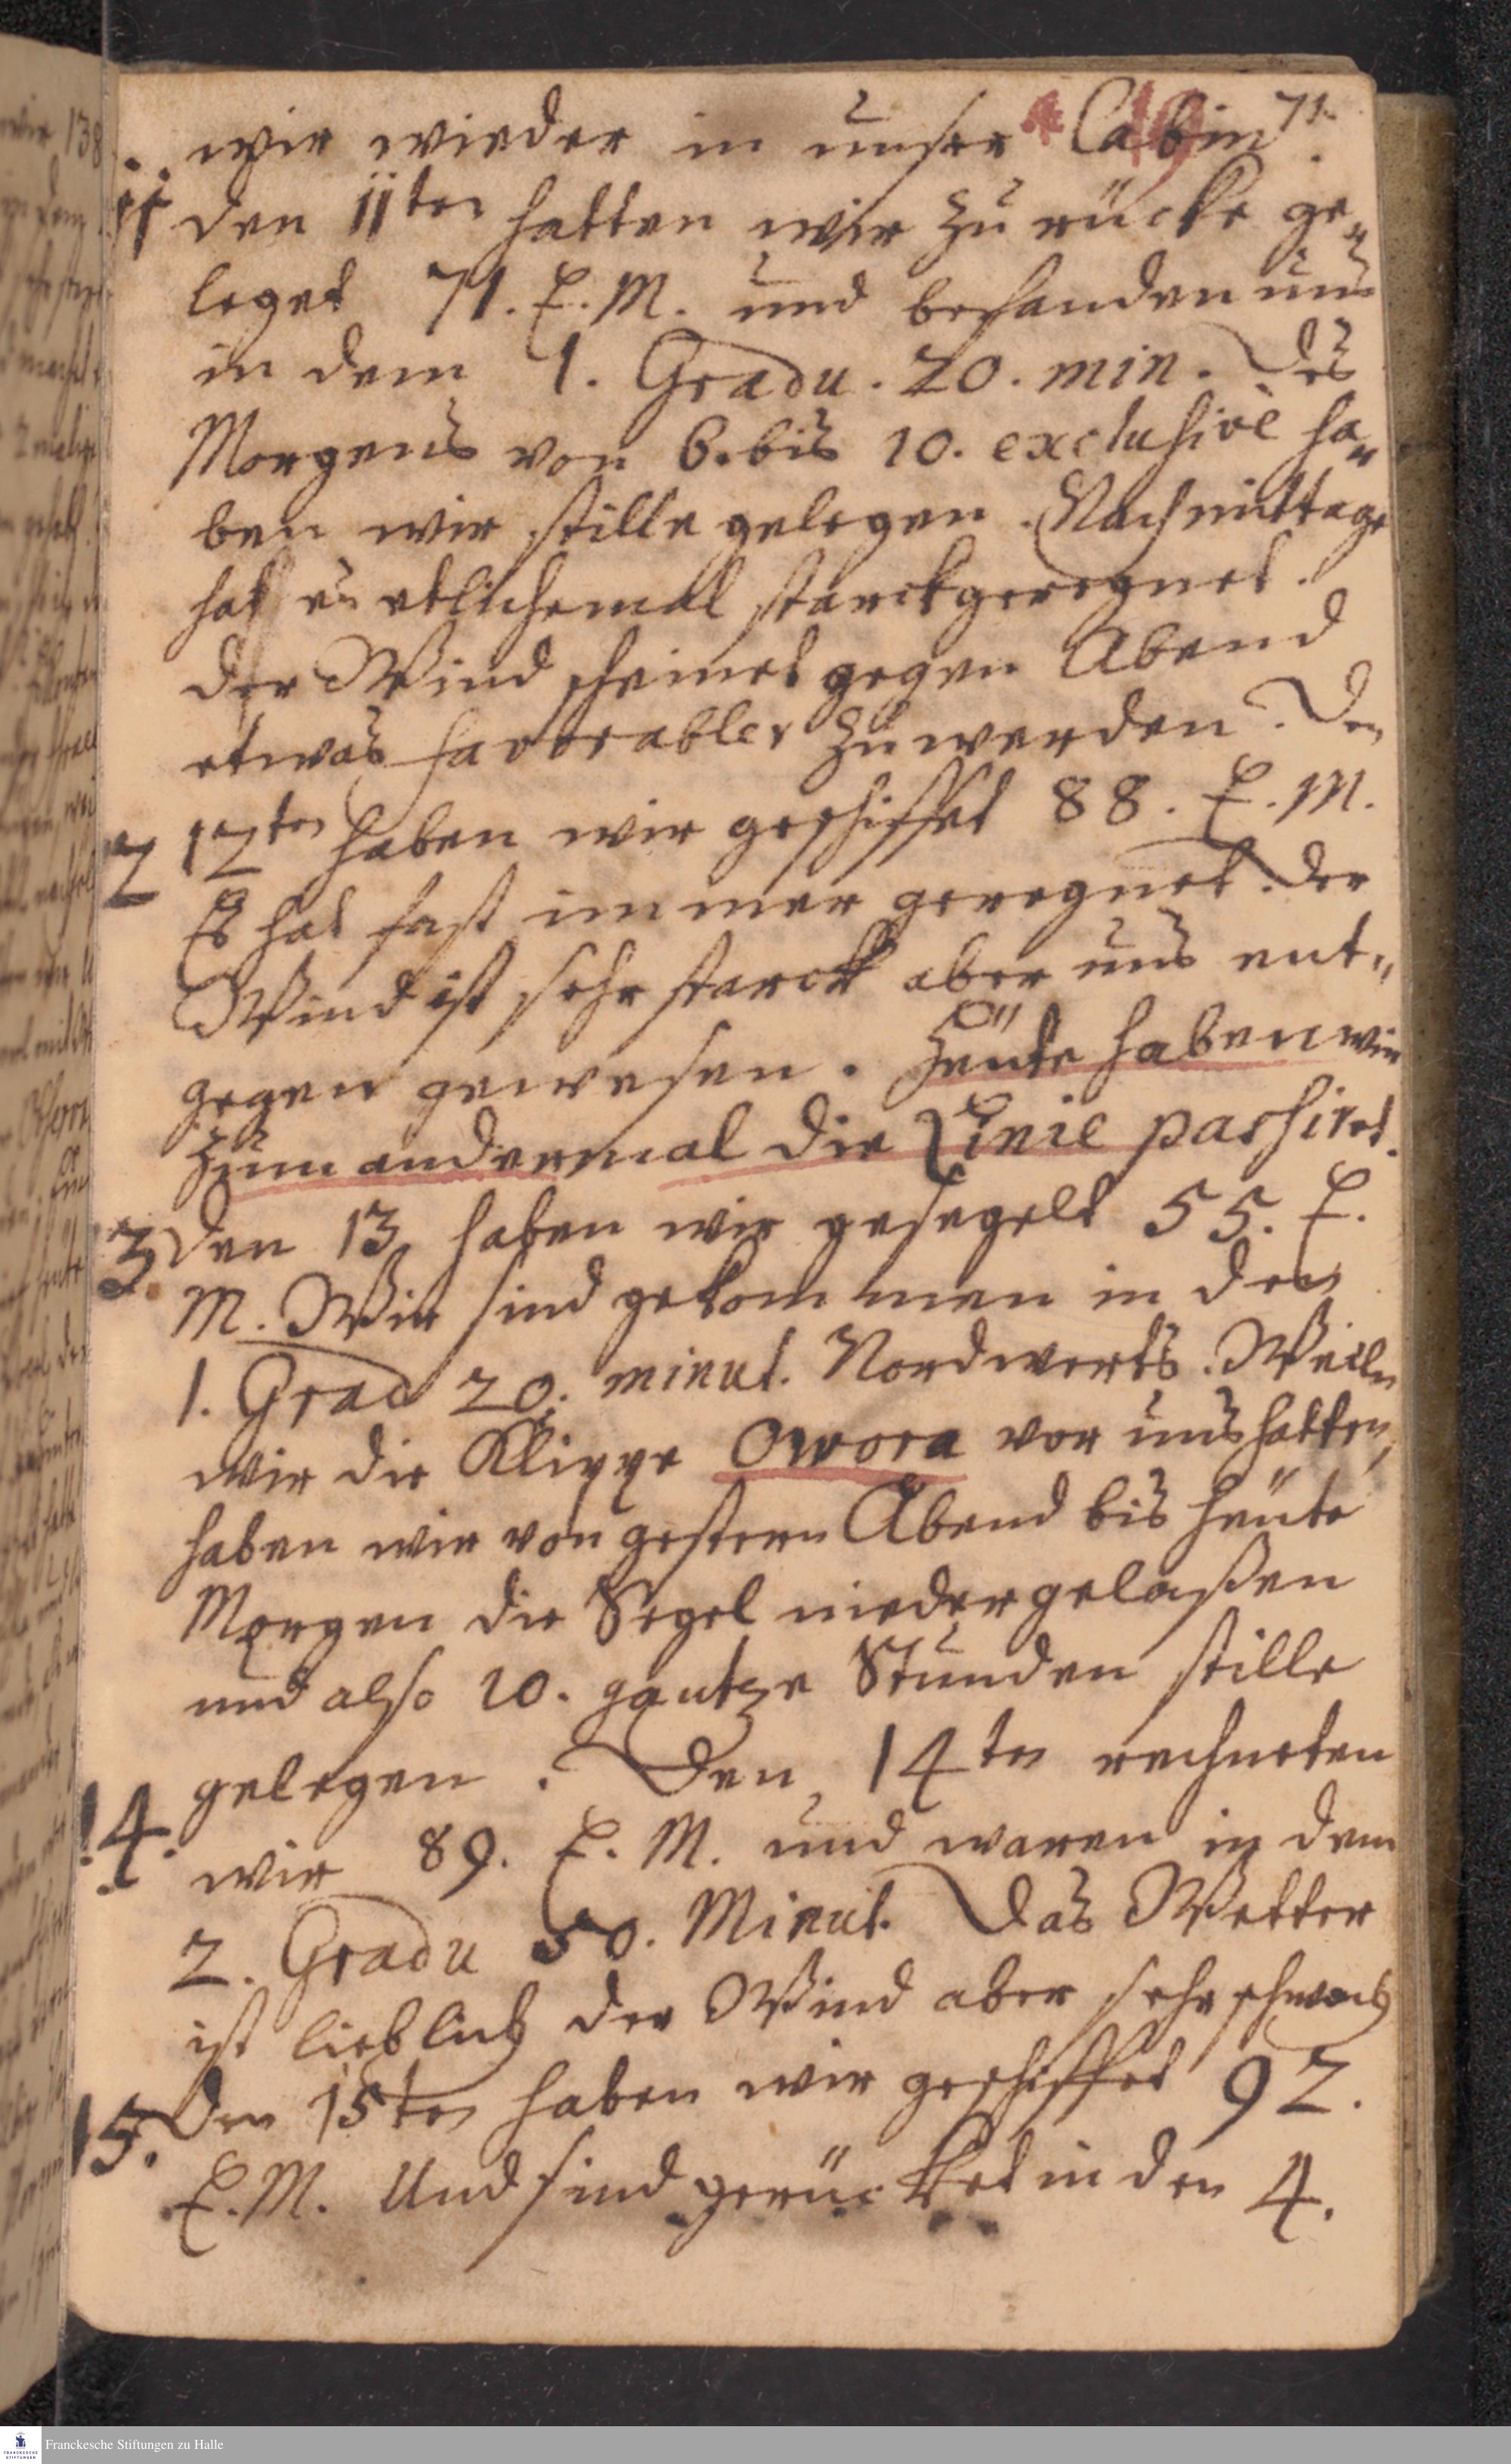 71.
wir wieder in unser Cabin.
11 den 11ten hatten wir zu rücke ge„
leget 71. E. M. und befanden uns
in dem 1. Gradu. 20. min. Des
Morgens von 6. bis 10. exclusive ha„
ben wir stille gelegen. Nachmittage
hat es etlichemal starck geregnet.
der Wind scheinet gegen Abend
etwas favorabler zu werden. Den
2 12ten haben wir geschiffet 88. E. M.
Es hat fast immer geregnet. der
Wind ist sehr starck aber uns ent„
gegen gewesen. Heüte haben wir
zum andernmal die Linie passiret.
3. Den 13 haben wir gesegelt 55. E.
M. Wir sind gekommen in den
1. Grad 20. minut. Nordwerts. Weiln
wir die Klippe Owora vor uns hatten,
haben wir von gestern Abend bis heüte
Morgen die Segel niedergelaßen
und also 10. gantze Stunden stille
gelegen. Den 14ten rechneten
14. wir 89. E. M. und waren in dem
2. Gradu 50. Minut. Das Wetter
ist lieblich der Wind aber sehr schwach
15. Den 15ten haben wir geschiffet 92.
E. M. Und sind gerücket in den 4.
Franckesche Stiftungen zu Halle